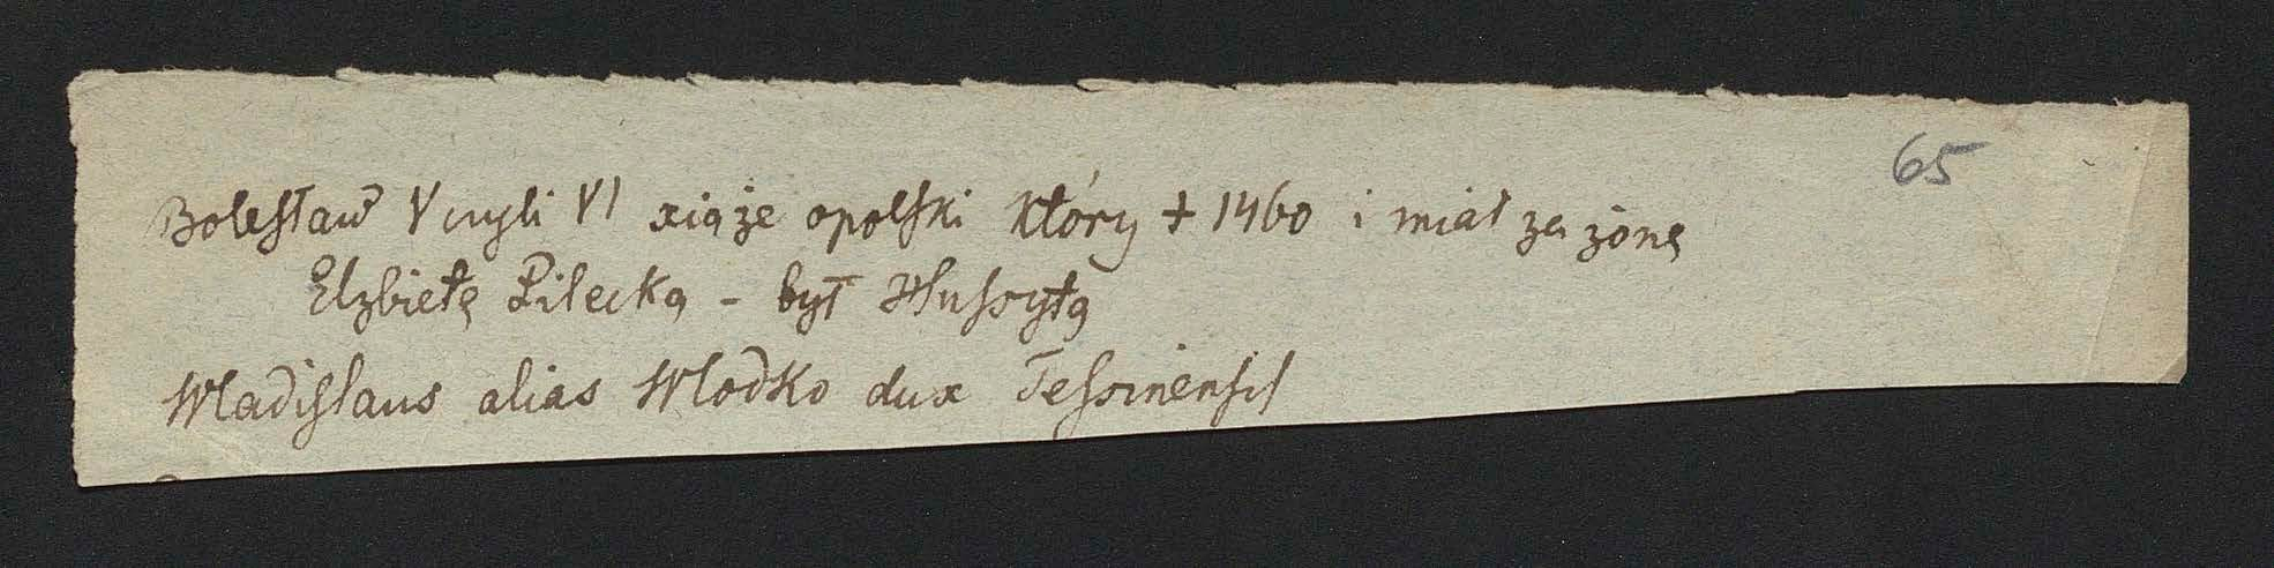 65
Bolesław V czyli VI xiąże opolski który + 1460 i miał za żonę
Elzbietę Pilecką - był Hussytą
Wladislaus alias Wlodko dux Tessinensis